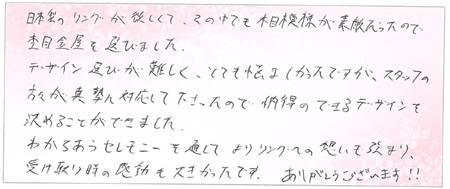 日本製のリングが欲しくて、その中でも木目模様が素敵だったので
杢目金屋を選びました。
デザイン選びが難しく、とても悩ましかったですが、スタッフの
方々が真摯に対応して下さったので納得のできるデザインを
決めることができました。
わかちあうセレモニーを通してよりリングへの想いも強まり、
受け取り時の感動も大きかったです。ありがとうございます!!